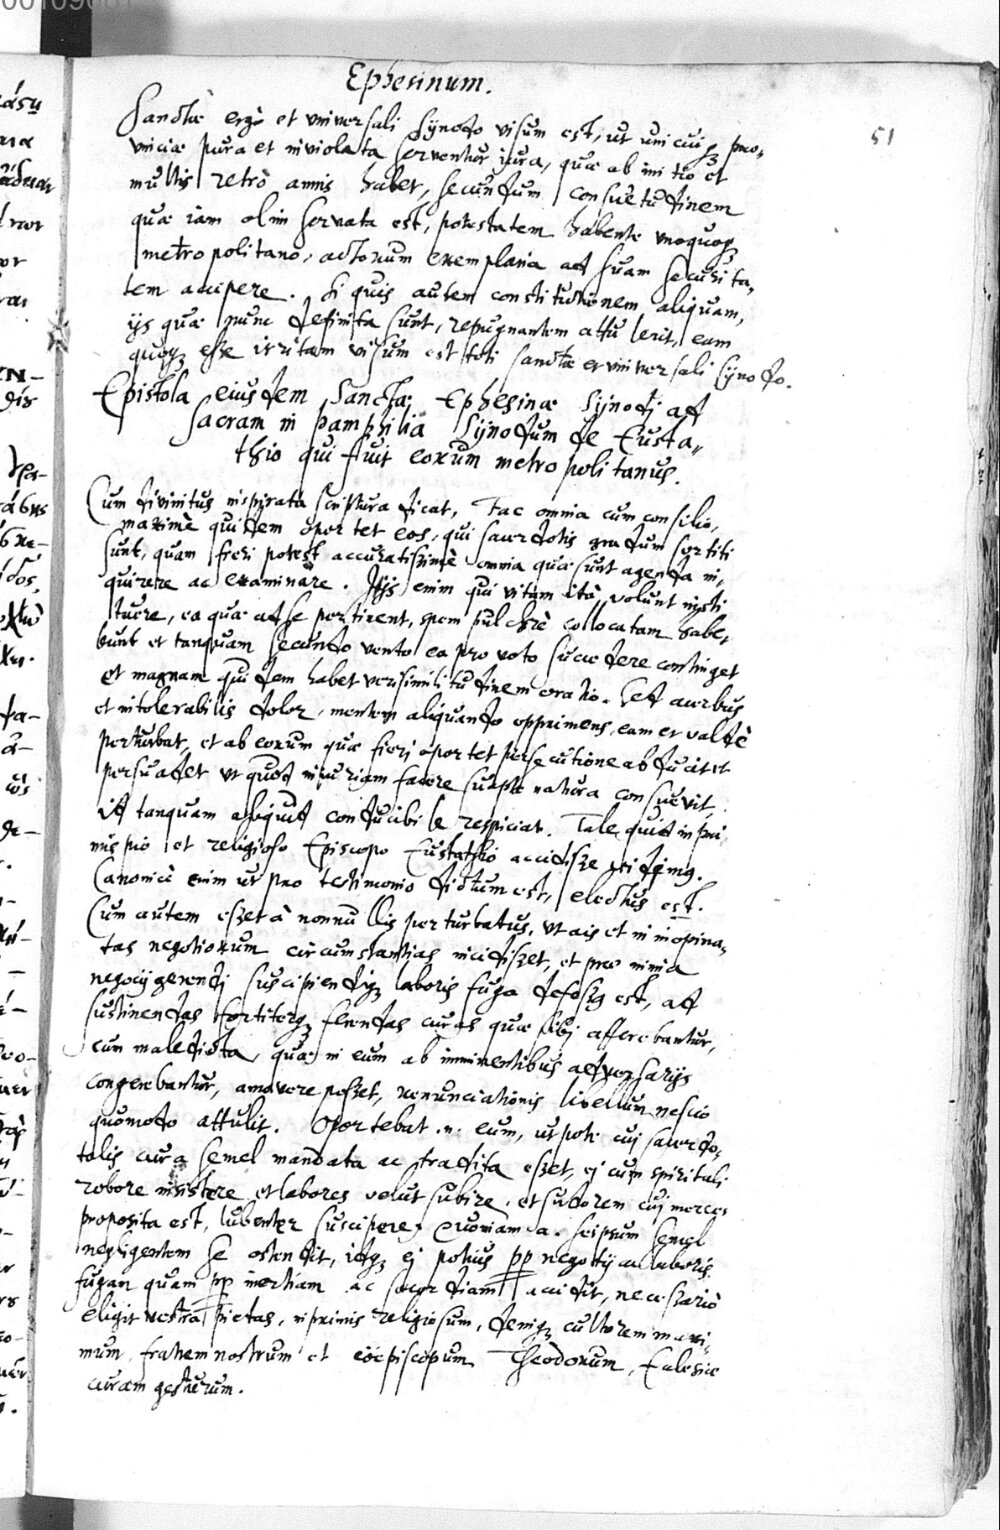 Ephesinum.
51
Sanctæ ergò et vniuersali Synodo visum est, ut unicuiq; pro-
vinciæ pura et inviolata serventur jura, quæ ab initio et
multis retrò annis habet, secundum consuetudinem
quæ iam olim servata est, potestatem habente unoquoq;
metropolitano, actorum exemplaria ad suam securita-
tem accipere. Si quis autem constitutionem aliquam,
ijs quæ nunc definita sunt, repugnantem attulerit, eam
quoq; esse irritam visum est toti sanctæ et vniversali synodo.
Epistola eiusdem Sanctæ Ephesinæ Synodj ad
sacram in pamphilia Synodum de Eusta-
thio qui fuit eorum metropolitanus.
Cum divinitus inspirata scriptura dicat, Fac omnia cum consilio,
maximè quidem oportet eos, qui sacerdotis gradum sortiti
sunt, quam fieri potest accuratissimè omnia quæ sunt agenda in-
quirere ac examinare. Ijs enim qui vitam ità volunt insti
tuere, ea quæ ad se pertinent, spem pulchrè collocatam habe-
bunt et tanquam secundo vento ea pro voto succedere continget
et magnam quidem habet verisimilitudinem oratio. Sed acerbus
et intolerabilis dolor, mentem aliquando opprimens, eam et valdè
perturbat, et ab eorum quæ fierj oportet persecutione abducit et
persuadet ut quod injuriam facere suapte natura consuevit,
id tanquam aliquid conducibile respiciat. Tale quid inpri
mis pio et religioso Episcopo Eustathio accidisse vidimus.
Canonicè enim ut pro testimonio dictum est, electus est.
Cum autem esset à nonnullis perturbatus, ut ais et in inopina-
tas negotiorum circumstantias incidisset, et præ nimia
negocij gerendj suscipiendiq; laboris fuga defessus est, ad
sustinendas fortiterq; ferendas curas quæ sibj afferebantur,
cum maledicta, quæ in eum ab imminentibus adversarijs
congerebantur, amovere posset, renunciationis libellum nescio
quomodo attulit. Oportebat .n. eum, utpote cuj sacerdo-
talis cura semel mandata ac tradita esset, ej cum spirituali
robore insistere et labores velut subire, et sudorem cuj merces
proposita est, lubenter suscipere, Quoniam a. seipsum semel
negligentem se ostendit, idq; ej potius pp negotij ac laboris
fugam quam pp inertiam ac socordiam accidit, necessariò
eligit vestra pietas, inprimis religiosum, deniq; cultorem maxi-
mum, fratrem nostrum et coepiscopum Theodorum, Eclesiæ
curam gesturum.